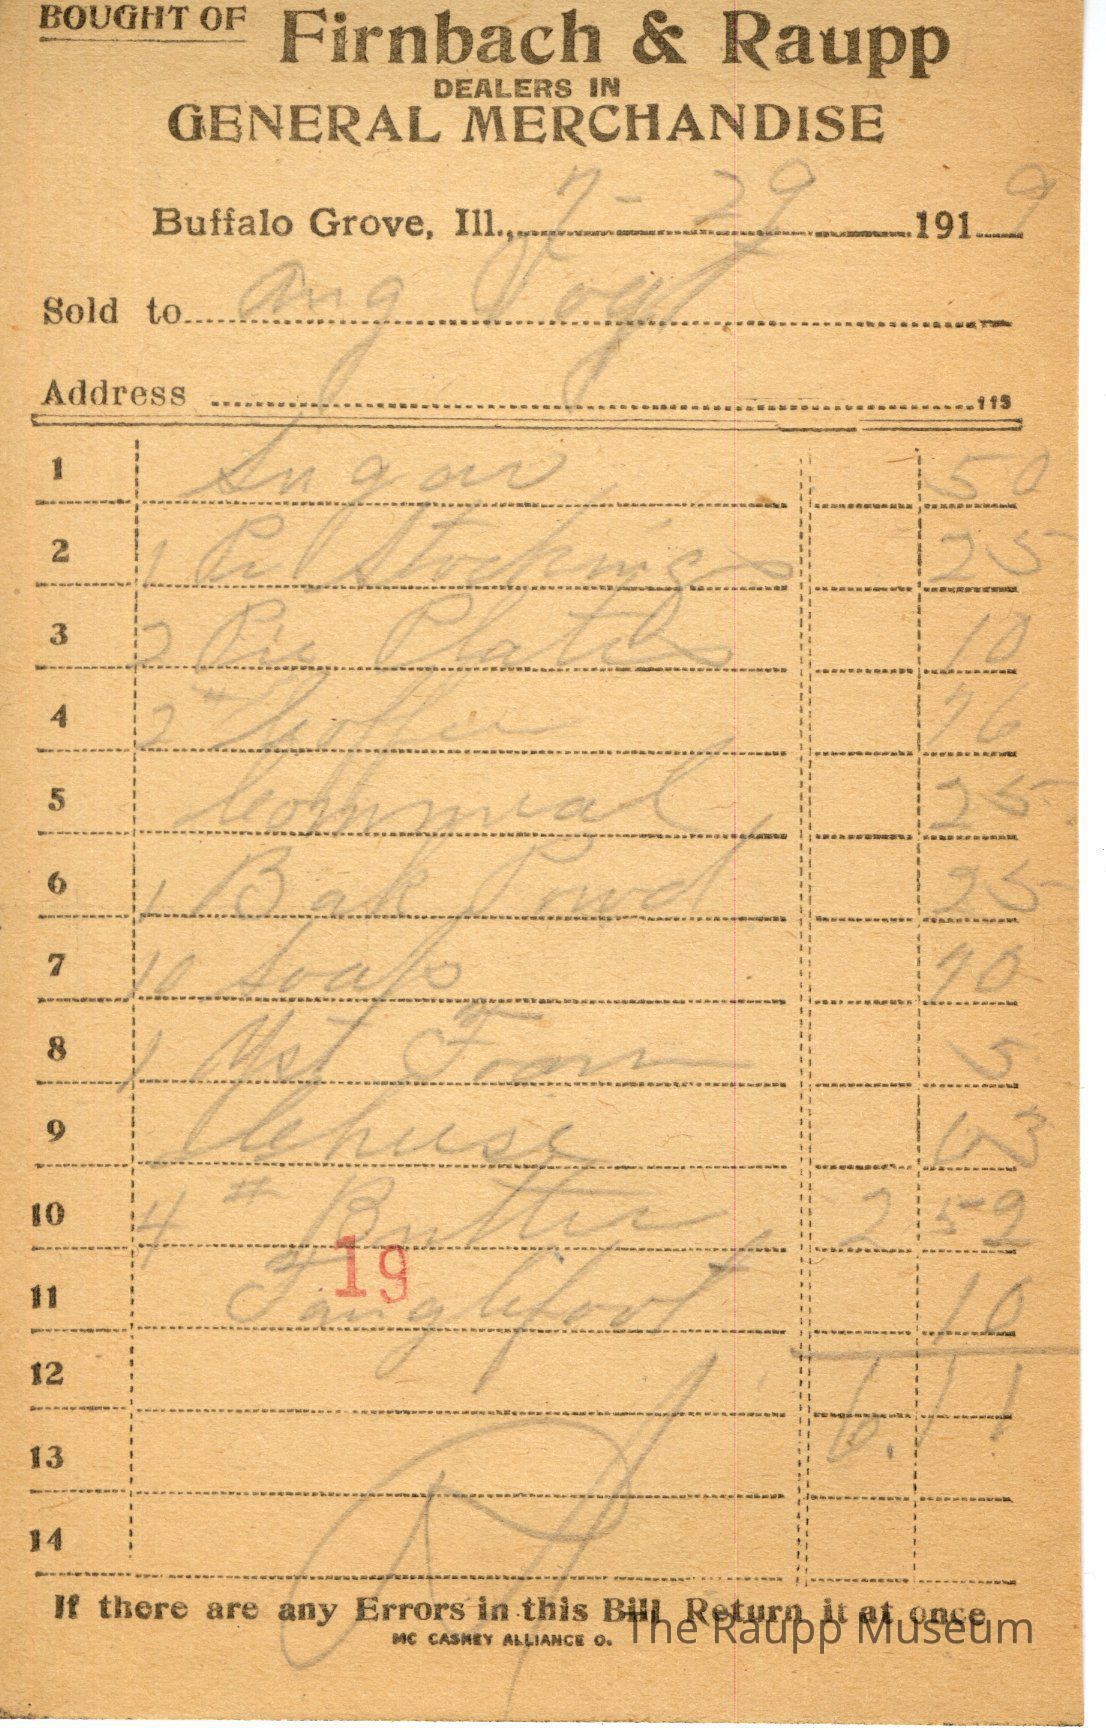 BOUGHT OF Firnbach & Raupp
DEALERS IN
GENERAL MERCHANDISE
Buffalo Grove, Ill., 7-29 1919
Sold to Aug Vogt
Address 113
1 Sugar 50
2 1 Pr Stockings 25
3 2 Pie Plates 10
4 2 # Coffee 76
5 Cornmeal 25
6 1 Bak Powd 25
7 10 Soap 70
8 1 Yst Foam 5
9 Cheese 63
10 4 # Butter 2 52
11 Tanglefoot 10
19
12 6.11
13
14
If there are any Errors in this Bill Return it at once
MC CASKEY ALLIANCE O.
The Raupp Museum